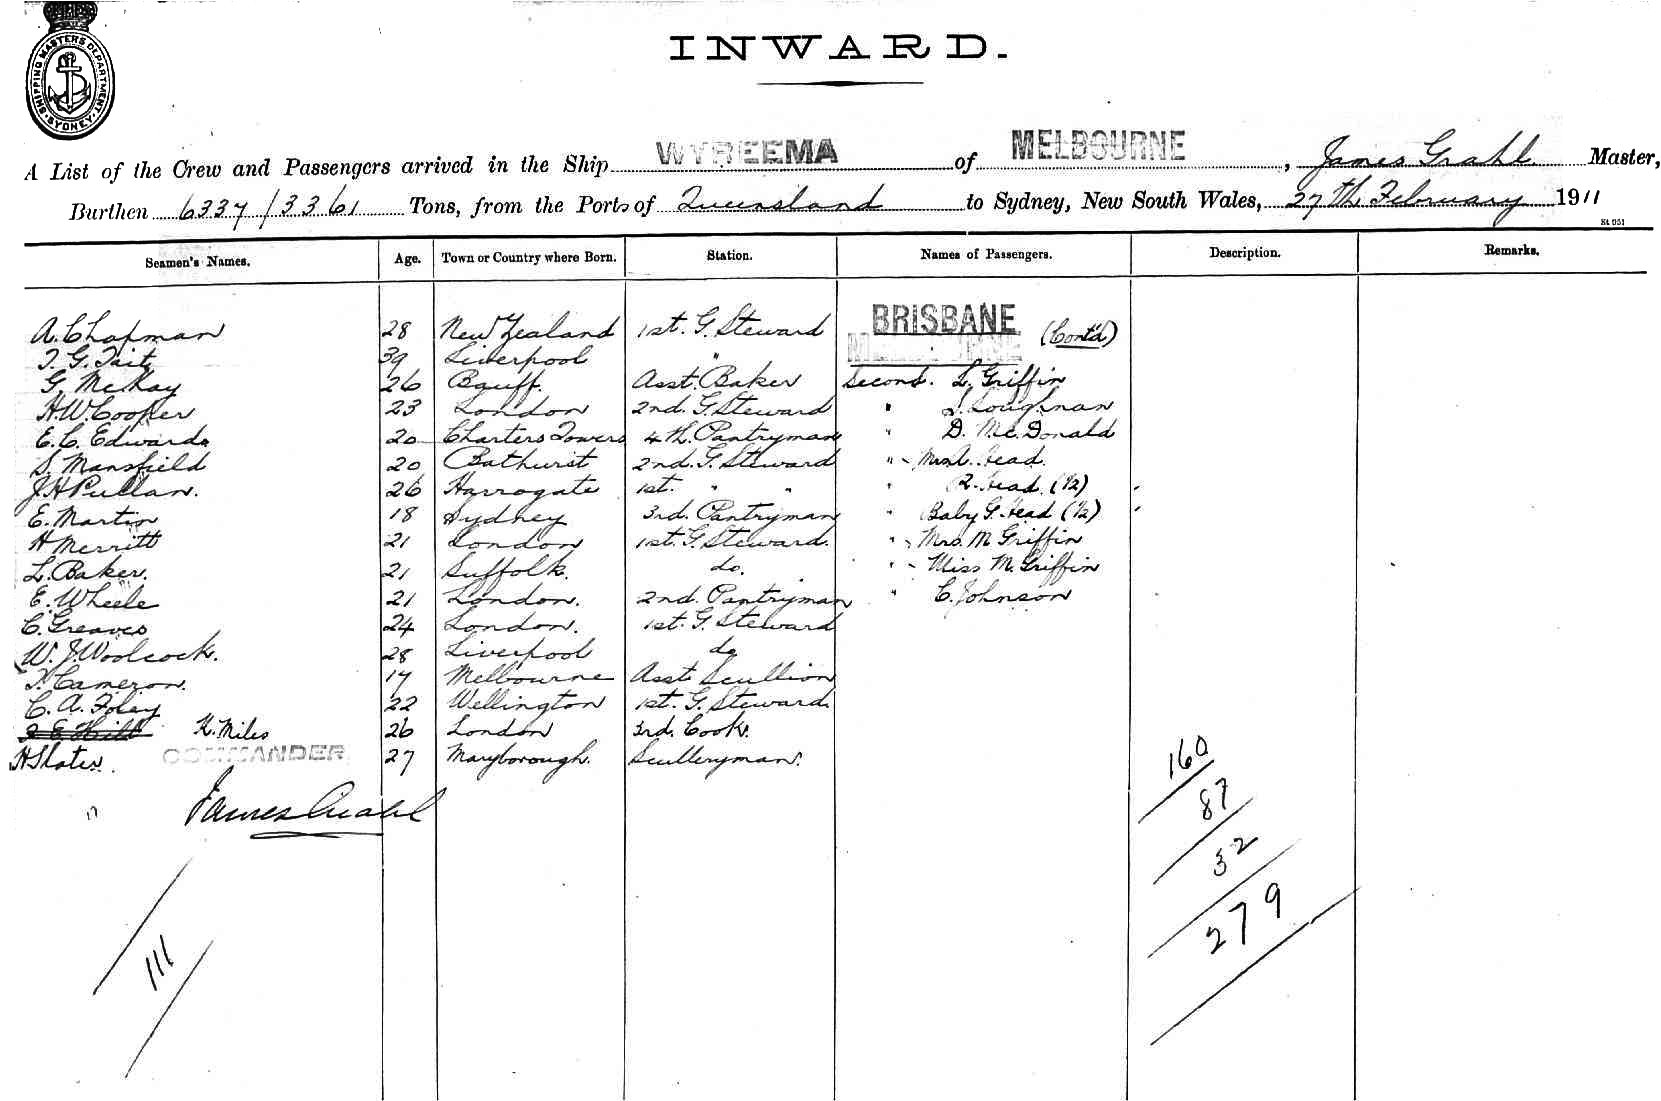 SHIPPING MASTERS DEPARTMENT. SYDNEY.
INWARD.
A List of the Crew and Passengers arrived in the Ship WYREEMA of MELBOURNE, James Grahl Master,
Burthen 6337/3361 Tons, from the Ports of Queensland to Sydney, New South Wales, 27th February 1911
St 951
Seamen's Names. Age. Town or Country where Born. Station. Names of Passengers. Description. Remarks.
BRISBANE (Contd)
A. Chapman 28 New Zealand 1st. G. Steward
T. G. Tait 39 Liverpool "
G. McKay 26 Asst. Baker Second. L. Griffin
H. W. Cooper 23 London 2nd. G. Steward " Loughnan
E. C. Edwards 20 Charters Towers 4th. Pantryman " D. McDonald
S. Mansfield 20 Bathurst 2nd. G. Steward " Head.
J. H Pullan. 26 Harrogate 1st. " " " Head (1/2)
E. Martin 18 Sydney 3rd. Pantryman " Baby G. Head (1/2)
H Merritt 21 London 1st. G. Steward. " Mrs. M Griffin
L. Baker. 21 Suffolk. do. " Miss M. Griffin
E. Wheele 21 London. 2nd. Pantryman " C. Johnson
C. Greaves 24 London. 1st. G. Steward
W. J. Woolcock. 28 Liverpool do
Cameron. 17 Melbourne Asst Scullion
C. A. Foley 22 Wellington 1st. G. Steward.
K. Miles 26 London 3rd. Cook.
H Slater. 27 Maryborough. Sculleryman.
COMMANDER
James Grahl
17
160
87
32
279
111